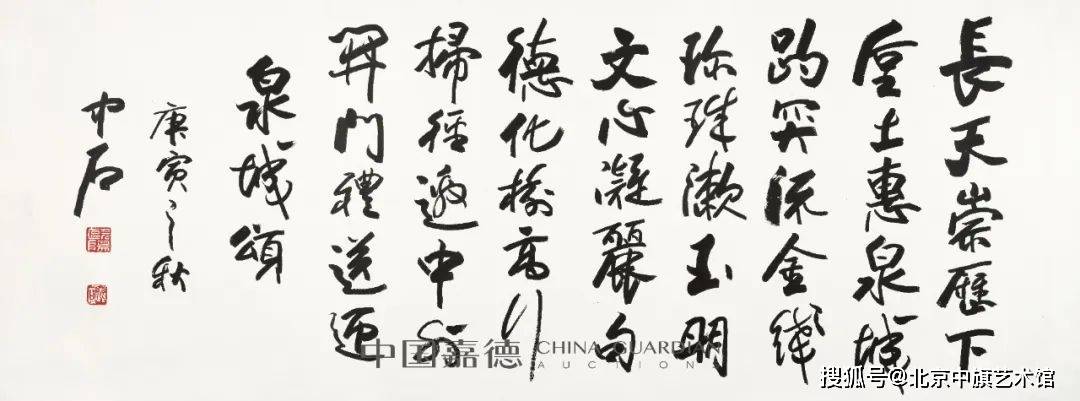 長天崇歷下
垕土惠泉城
趵突流金綫
珍珠漱玉明
文心凝麗句
德化樹高行
掃徑邀中外
開門禮送迎
泉城頌
庚寅之秋
中石
中国嘉德 CHINA GUARDIAN
AUCTIONS
搜狐号@北京中旗艺术馆